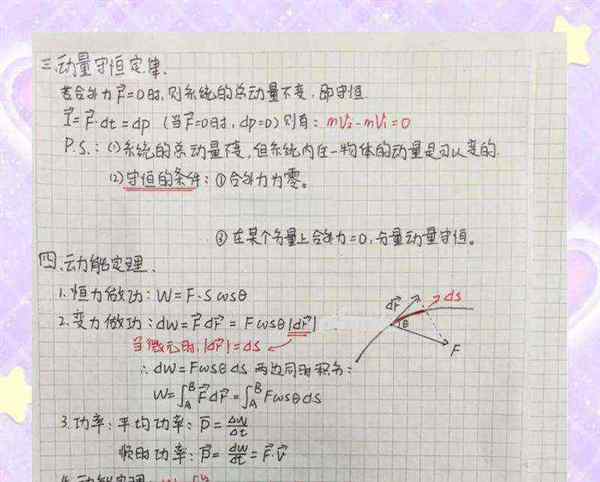 三.动量守恒定律.
若合外力F⃗=0时,则系统的总动量不变,即守恒
I⃗=F⃗·dt=dp (当F⃗=0时,dp=0)则有: mV₂-mV₁=0
P.S.: (1)系统的总动量不变,但系统内任一物体的动量是可以变的.
(2)守恒的条件: ①合外力为零。
③在某个分量上合外力=0,分量动量守恒。
四.动能定理.
1.恒力做功: W=F·S cosθ
2.变力做功: dw=F⃗dr⃗=Fcosθ|dr⃗|
当微元时,|dr⃗|=ds
∴dW=Fcosθds 两边同时积分:
W=∫ₐᴮF⃗dr⃗=∫ₐᴮFcosθds
dr⃗ ds
θ
F
3.功率: 平均功率: P̄=ΔW/Δt
瞬时功率: P⃗=dw/dt=F⃗·V⃗